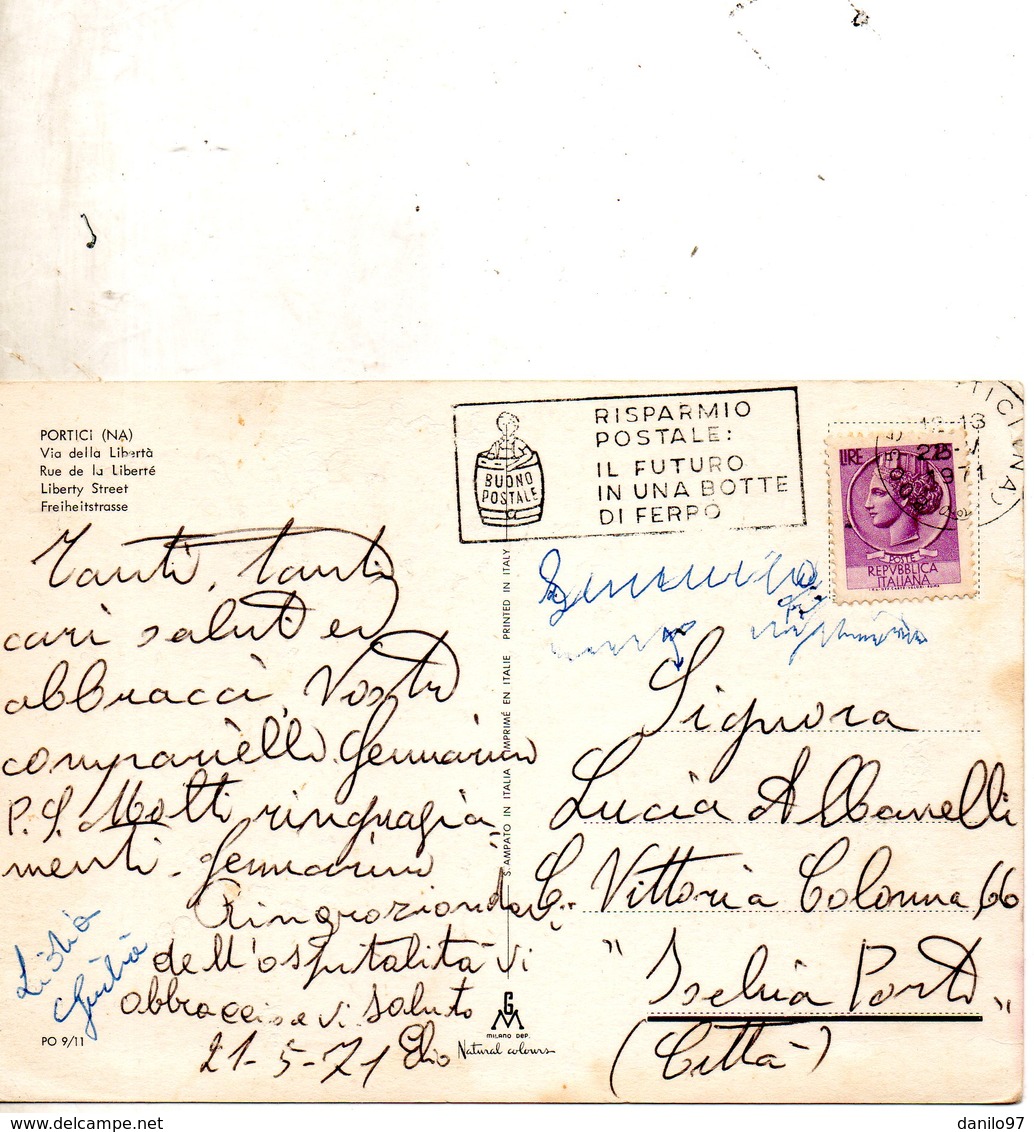 PORTICI (NA)
Via della Libertà
Rue de la Liberté
Liberty Street
Freiheitstrasse
BUONO
POSTALE
RISPARMIO
POSTALE:
IL FUTURO
IN UNA BOTTE
DI FERRO
LIRE
POSTE
REPVBBLICA
ITALIANA
1971
Tanti, tanti
cari saluti ed
abbracci, Vostro
compariello Gennarino
P.S. Molti ringragia
menti. Gennarino
Ringroziondovi
dell'ospitalità vi
abbraccio e vi saluto
21-5-71 Elio
Giulia
PO 9/11
STAMPATO IN ITALIA IMPRIMÉ EN ITALIE PRINTED IN ITALY
GM
MILANO DEP.
Natural colours
Signora
Lucia Albanelli
C. Vittoria Colonna, 66
" Ischia Porto "
(Città)
danilo97